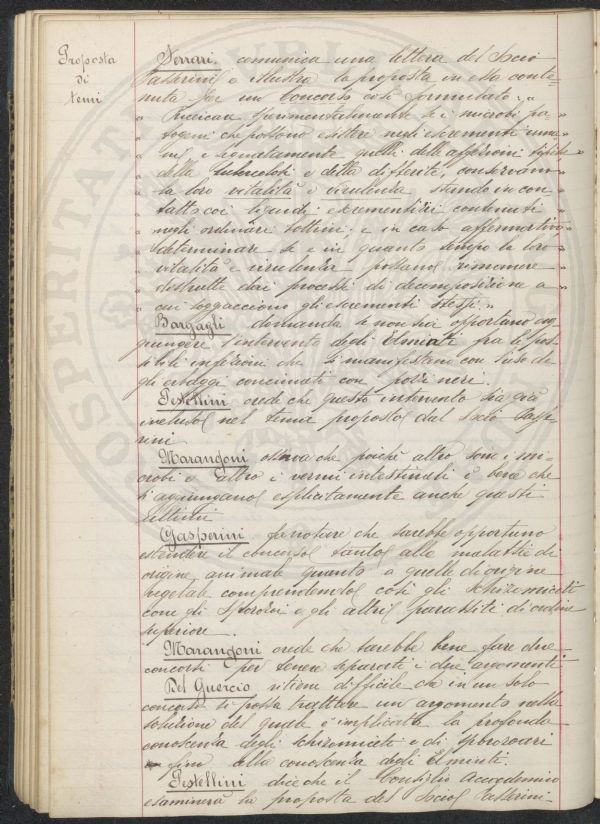 Proposta
di
temi
Ferrari. comunica una lettera del Socio
Passerini e illustra la proposta in essa conte-
nuta per un Concorso così formulato: "
" Ricercare sperimentalmente se i microbi pa- "
" togeni che possono esistere negli escrementi uma- "
" ni, e segnatamente quelli delle affezioni tifiche "
" della tubercolosi e della difterite, conservano "
" la loro vitalità e virulenza stando in con- "
" tatto coi liquidi escrementizi contenuti "
" negli ordinari bottini; e in caso affermativo "
" determinare se e in quanto tempo la loro "
" vitalità e virulenza possano rimanere "
" distrutte dai processi di decomposizione a "
" cui soggiacciono gli escrementi stessi. "
Bargagli domanda se non sia opportuno ag-
giungere l'intervento degli Elminti fra le pos-
sibili infezioni che si manifestano con l'uso de-
gli erbaggi concimati con pozzi neri.
Pestellini crede che questo intervento sia già
incluso nel tema proposto dal socio Passe-
rini
Marangoni osserva che poichè altro sono i mi-
crobi e altro i vermi intestinali è bene che
si aggiungano esplicitamente anche questi
ultimi
Gasperini fa notare che sarebbe opportuno
estendere il concorso tanto alle malattie di
origine animale quanto a quelle di origine
vegetale comprendendo così gli schizomiceti
come gli sporozoi e gli altri parassiti di ordine
superiore.
Marangoni crede che sarebbe bene fare due
concorsi per tenere separati i due argomenti
Del Guercio ritiene difficile che in un solo
concorso si possa trattare un argomento nella
soluzione del quale è implicata la profonda
conoscenza degli schizomiceti e di sporozoari
fino alla conoscenza degli Elminti.
Pestellini dice che il Consiglio Accademico
esaminerà la proposta del Socio Passerini-